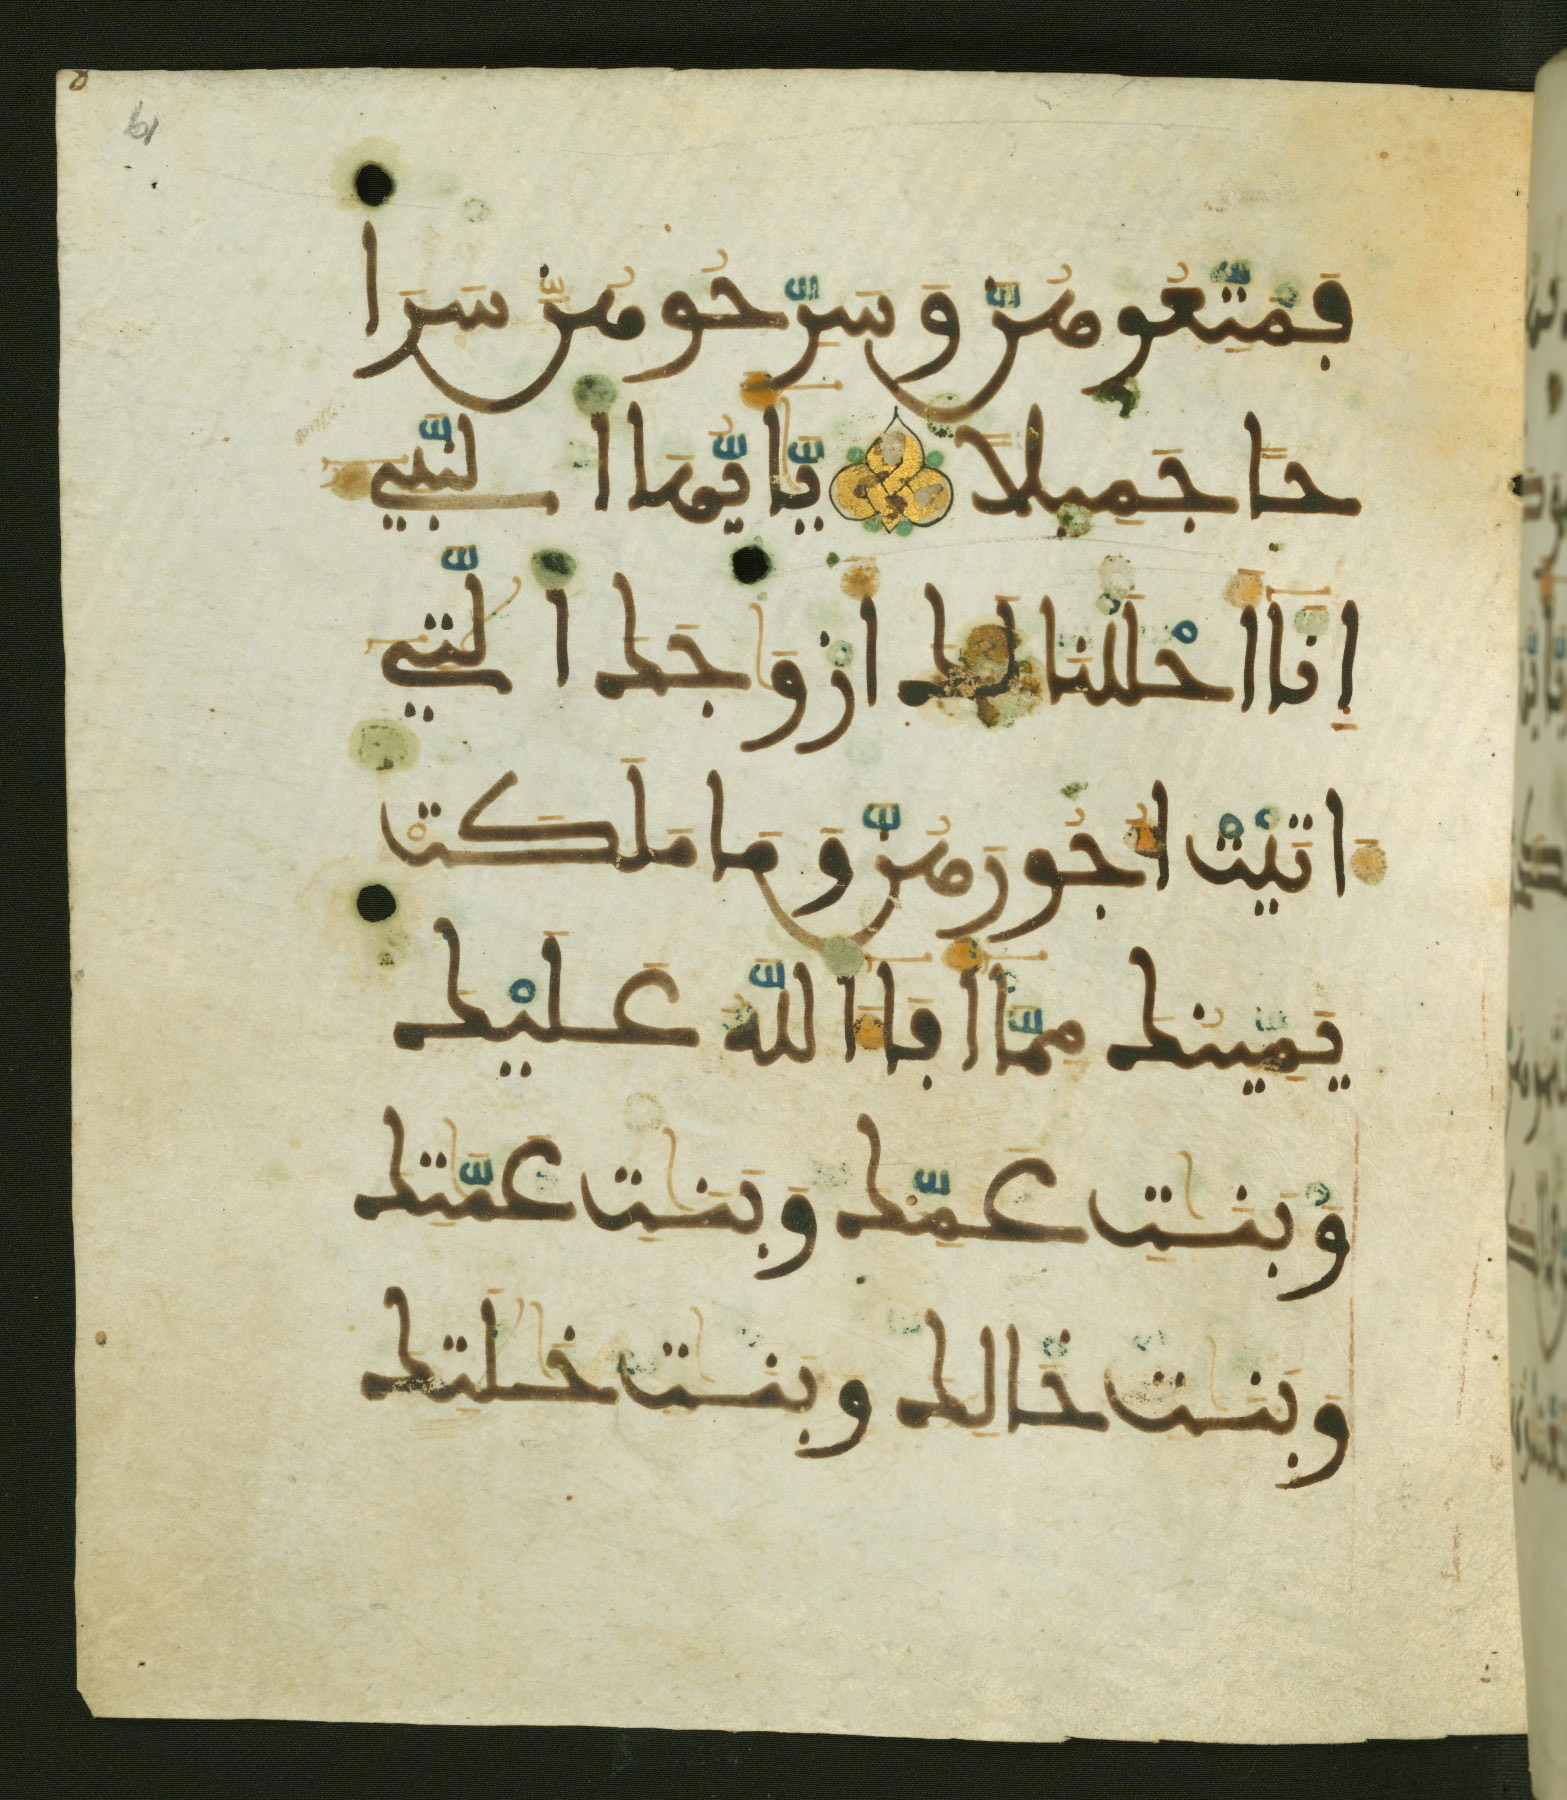 فَمَتِّعُوهُنَّ وَسَرِّحُوهُنَّ سَرَا
حًا جَمِيلًا يَٰٓأَيُّهَا ا لنَّبِيءُ
اِنَّآ أَحْلَلْنَا لَكَ أَزْوَٰجَكَ ا لَّٰتِےٓ
ءَاتَيْتَ أُجُورَهُنَّ وَمَا مَلَكَتْ
يَمِينُكَ مِمَّآ أَفَآءَ اَللَّهُ عَلَيْكَ
وَبَنَٰتِ عَمِّكَ وَبَنَٰتِ عَمَّٰتِكَ
وَبَنَٰتِ خَالِكَ وَبَنَٰتِ خَٰلَٰتِكَ